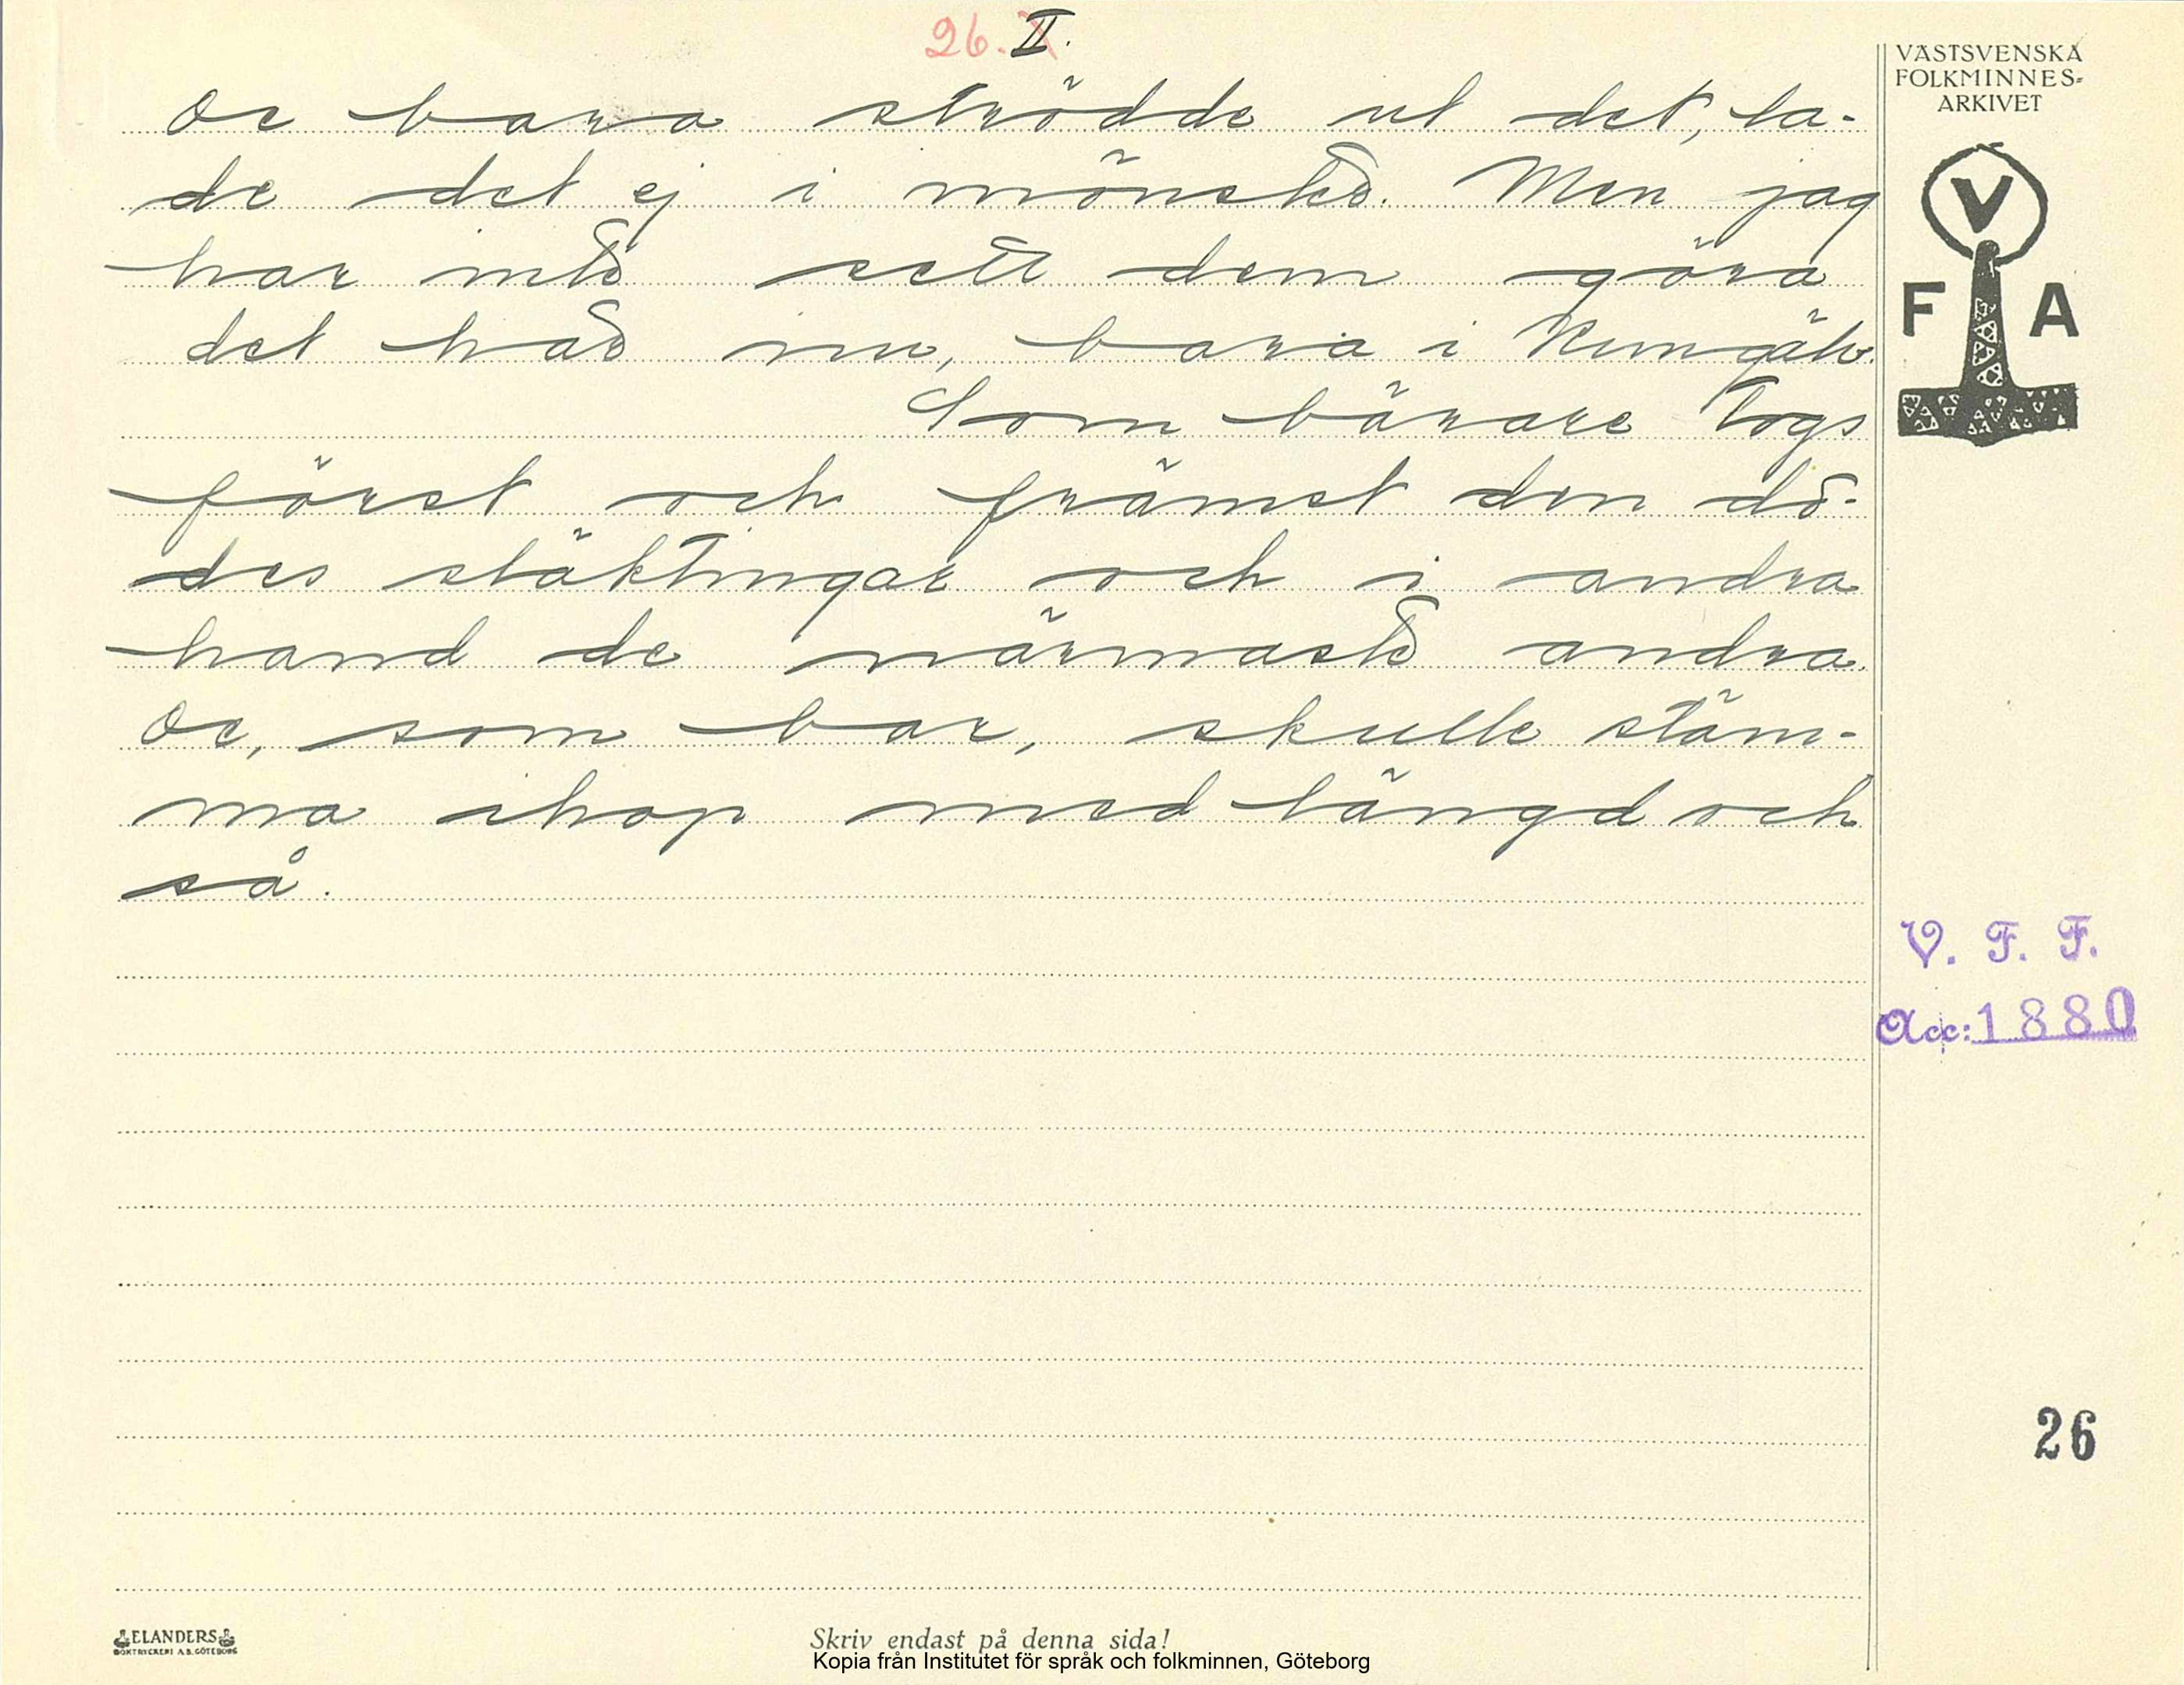 26. II.
De bara strödde ut det, la-
de det ej i mönster. Men jag
har inte sett dem göra
det här nu, bara i Kungälv.
Som bärare togs
först och främst den dö-
des släktingar och i andra
hand de närmaste andra.
De, som bar, skulle stäm-
ma ihop med längd och
så.
VÄSTSVENSKA
FOLKMINNES-
ARKIVET
V
F A
V. F. F.
Acc: 1880
26
ELANDERS
BOKTRYCKERI A.B. GÖTEBORG
Skriv endast på denna sida!
Kopia från Institutet för språk och folkminnen, Göteborg